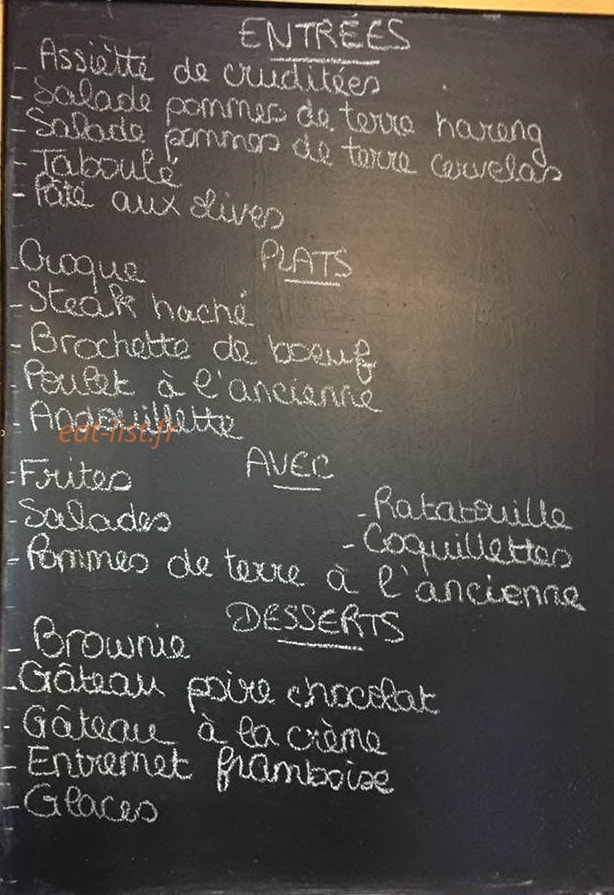 ENTRÉES
- Assiètte de cruditées
- Salade pommes de terre hareng
- Salade pommes de terre cervelas
- Taboulé
- Pâté aux olives
PLATS
- Croque
- Steak haché
- Brochette de boeuf
- Poulet à l'ancienne
- Andouillette
eat-list.fr
AVEC
- Frites
- Ratatouille
- Salades
- Coquillettes
- Pommes de terre à l'ancienne
DESSERTS
- Brownie
- Gâteau poire chocolat
- Gâteau à la crème
- Entremet framboise
- Glaces